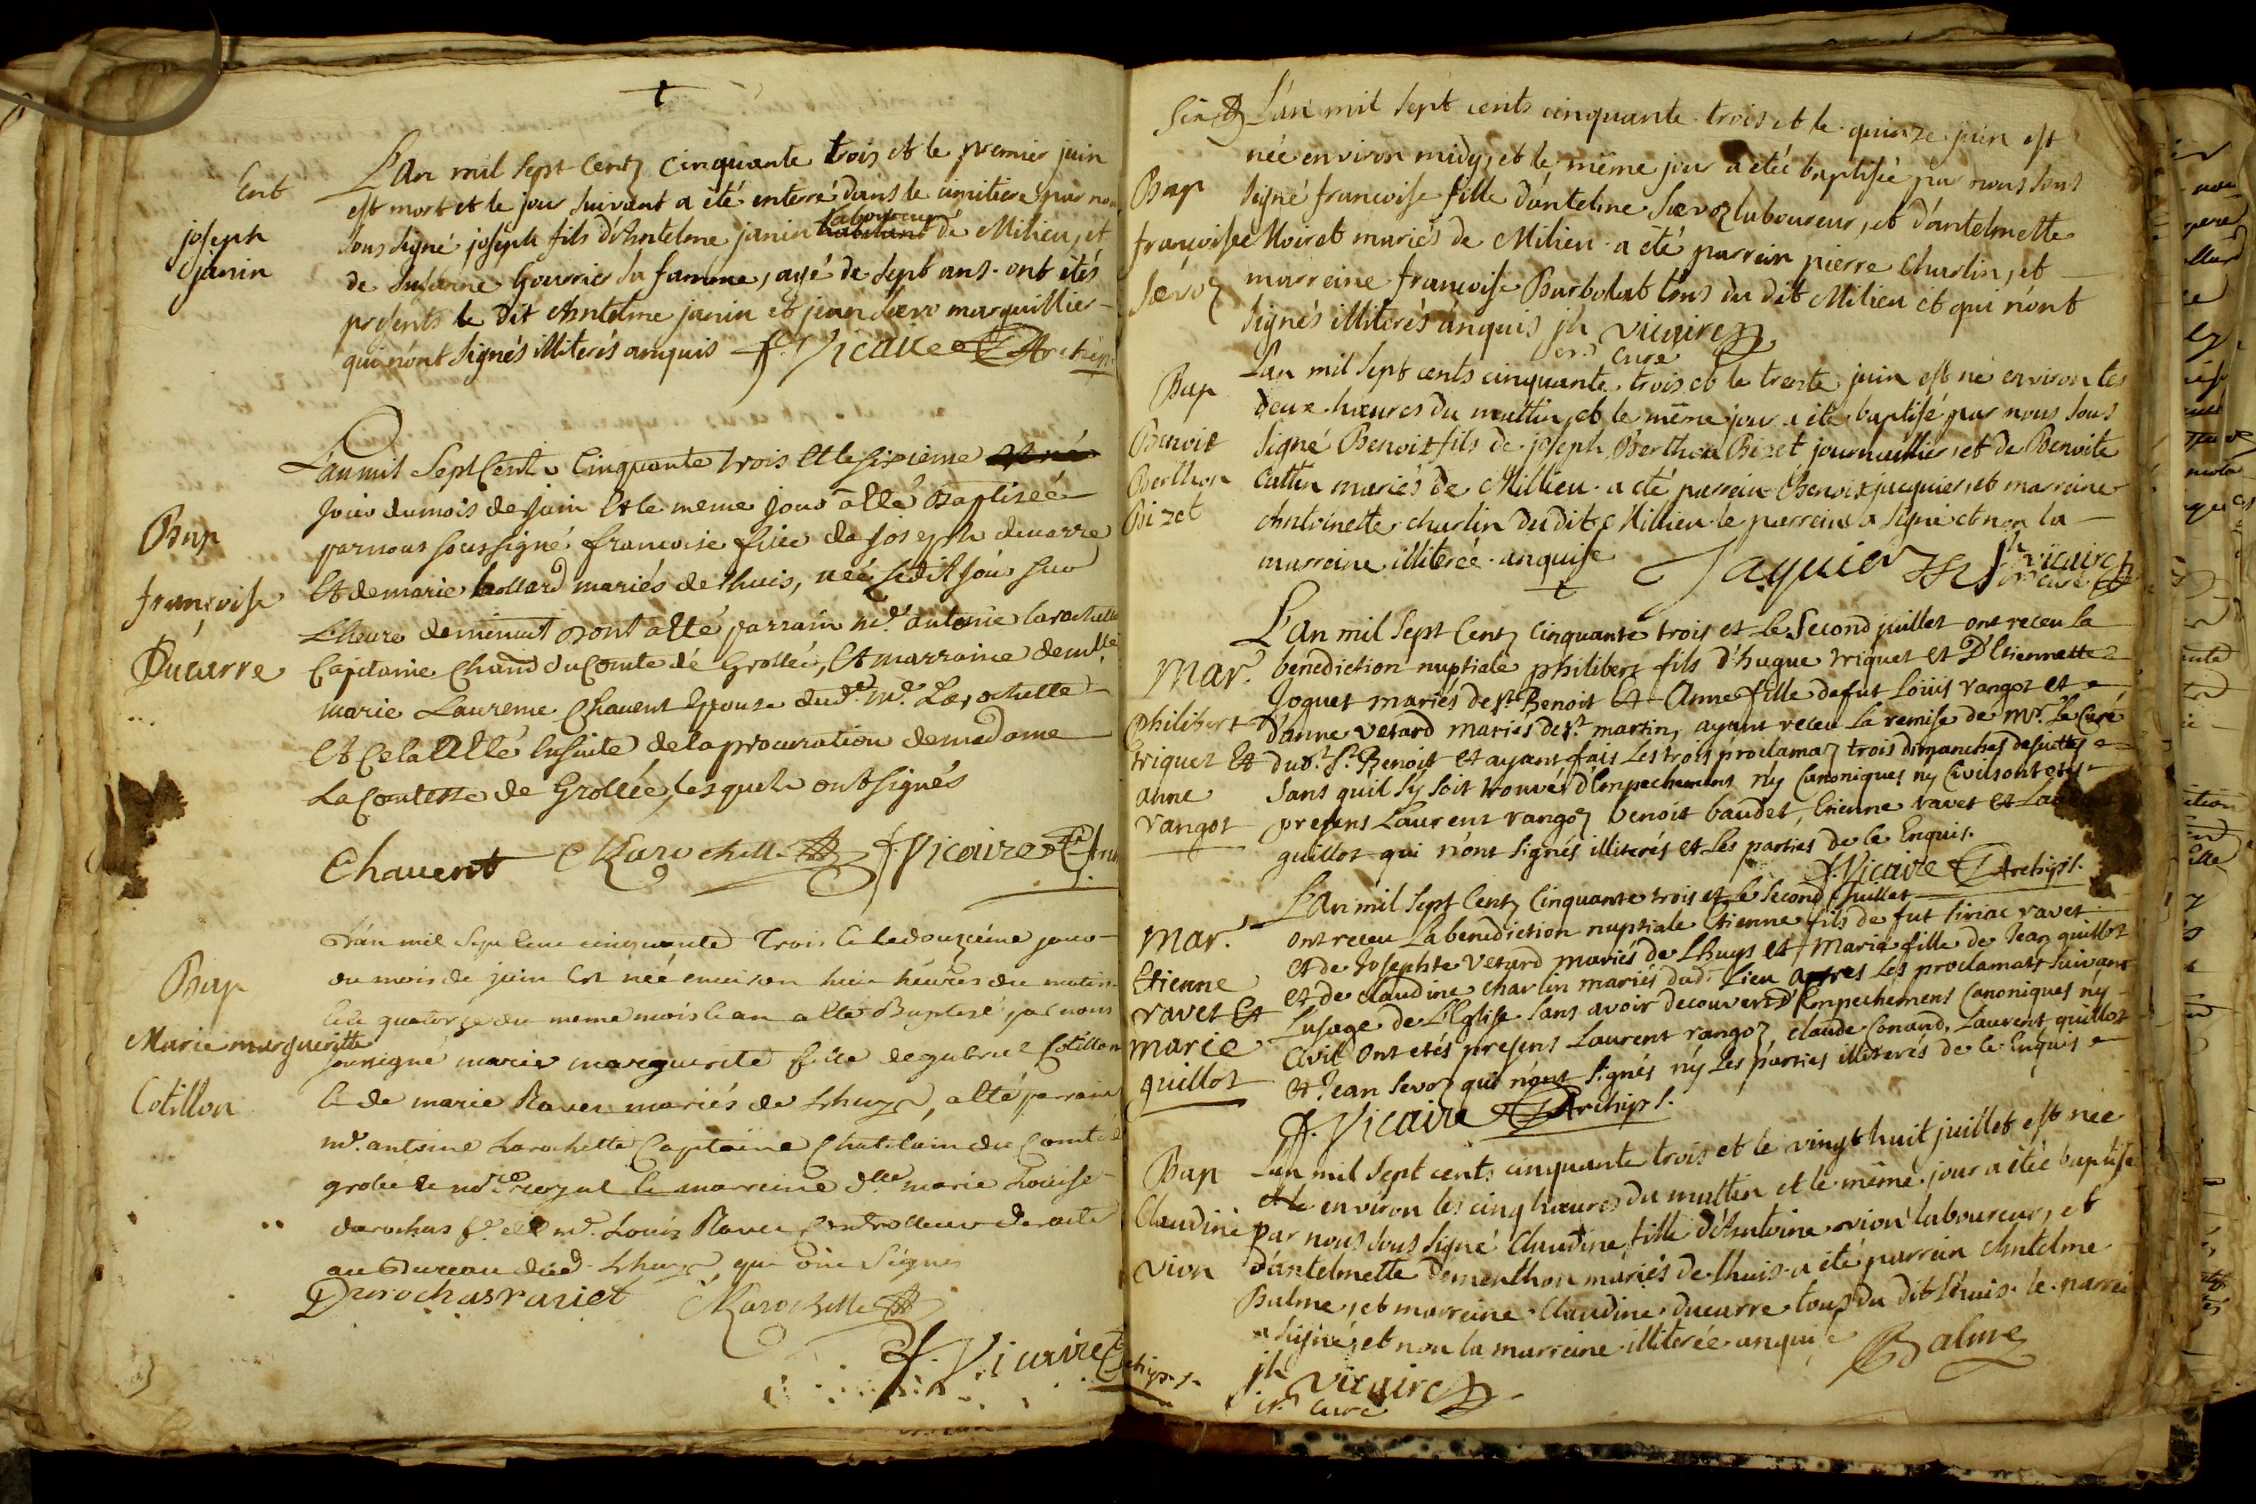 Ent
joseph
janin
L'An mil sept centz cinquante trois et le premier juin
est mort et le jour suivant a été enterré dans le cimitiere par nous
sous signé joseph fils d'Antelme janin laboureur habitant de Milieu, et
de Susanne Gourrier sa famme, agé de sept ans. ont étés
presents le dit Antelme janin et jean Saevo marguillier
qui n'ont signés illiterés anquis f. Vicaire Archip
Bap
françoise
Ducarre
L'an mil Sept Cent Cinquante trois Et le sixieme
Jour du mois de Juin Et le meme Jour a Eté Baptizée
par nous soussigné francoise fille de Joseph ducarre
Et de marie mariés de Lhuis, neé le dit Jour sur
L'heure de minuit ont Eté parrain mr. antoine Larochette
Capitaine Chatn du Comté de Groslée, Et marraine demlle
marie Laurence Chavent Epouse dud. mr. Larochette
Et Cela a Eté Ensuite de la procuration de madame
La Comtesse de Groslée, lesquels ont signés
Chavent Larochette f. Vicaire
Bap
Marie margueritte
Cotillon
L'an mil sept cent cinquante Trois Et le douzième jour
du mois de juin Est née environ huit heures du matin
Et le quatorze du meme mois Et an a Eté Baptisé par nous
soussigné marie marguerite fille de gabriel Cotillon
Et de marie Ravet mariés de Lhuys, a Eté parrain
mr. antoine Larochette Capitaine Chatelain du Comté de
grolée Et nore royal Et marreine dlle marie Louise
durochas fe. de mr. Louis Ravet Controlleur des actes
au Bureau dud. Lhuys qui ont Signés
Durochas raviet Larochette
f. Vicaire Archip.
Bap
françoise
Sævoz
L'an mil sept cents cinquante trois et le quinze juin est
née environ midy, et le même jour a étéé baptisée par nous sous
signé francoise fille d'antelme Sævoz laboureur, et d'antelmette
Moiret mariés de Milieu. a été parrain pierre Charlin, et
marreine francoise Barbolat tous du dit Milieu et qui n'ont
signés illiterés anquis jh vicaire
cure
Bap
Benoit
Berthon
Bizet
L'an mil sept cents cinquante trois et le trente juin est né environ les
deux hœures du mattin, et le même jour a été baptisé par nous sous
signé Benoit fils de joseph Berthon Bizet journaillier, et de Benoite
Cattin mariés de Millieu. a été parrein Benoit jaquier, et marreine
Antoinette charlin du dit Millieu. le parreins a signé et non la
marreine illiterée anquise Jaquier jh vicaire
cure
Mar.
philibert
triquet Et
anne
rangot
L'an mil sept Centz cinquante trois et Le Second juillet ont receu la
benediction nuptiale philibert fils d'hugue triquet et D'Etiennette
Joguet mariés de st. Benoit Et Anne fille de fut Loüis rangot et
D'anne vetard mariés de st martin, ayant receu La remise de mr. Le Curé
dud. st. Benoit Et ayant fais Les trois proclamaz trois dimanches desuittes
sans quil s'y soit trouvés d'Empechemens n'y Canoniques, n'y Civils ont etés
presens Laurent rangoz benoit baudet, Etienne ravet Et Lau
guillot qui n'ont signés illiterés et Les parties de ce Enquis.
f. Vicaire Archipt.
Mar.
Etienne
ravet Et
marie
guillot
L'an mil Sept Centz Cinquante trois et Le Second Juillet
ont receu La benediction nuptiale Etienne fils de fut Siriac ravet
et de Josephte Vetard mariés de Lhuys et Marie fille de Jean guillot
et de claudine charlin mariés dud. Lieu apres Les proclamats suivant
L'usage de L'Eglise sans avoir decouvert d'Empechemens Canoniques n'y
Civil. ont etés presens Laurent rangoz claude Conand, Laurent guillot
Et Jean Sevoz qui n'ont signés n'y Les parties illiterés de ce Enquis
f. Vicaire Archipt.
Bap
Claudine
vion
L'an mil sept cents cinquante trois et le vingt huit juillet est née
environ les cinq hœures du mattin et le même jour a étéé baptise
par nous sous signé Claudine fille d'Antoine vion laboureur, et
d'antelmette Dementhon mariés de lhuis. a été parrein Antelme
Balme, et marreine Claudine ducarre tous du dit lhuis. le parrei
a signé, et non la marreine illiterée anquise Balme
jh vicaire
cure